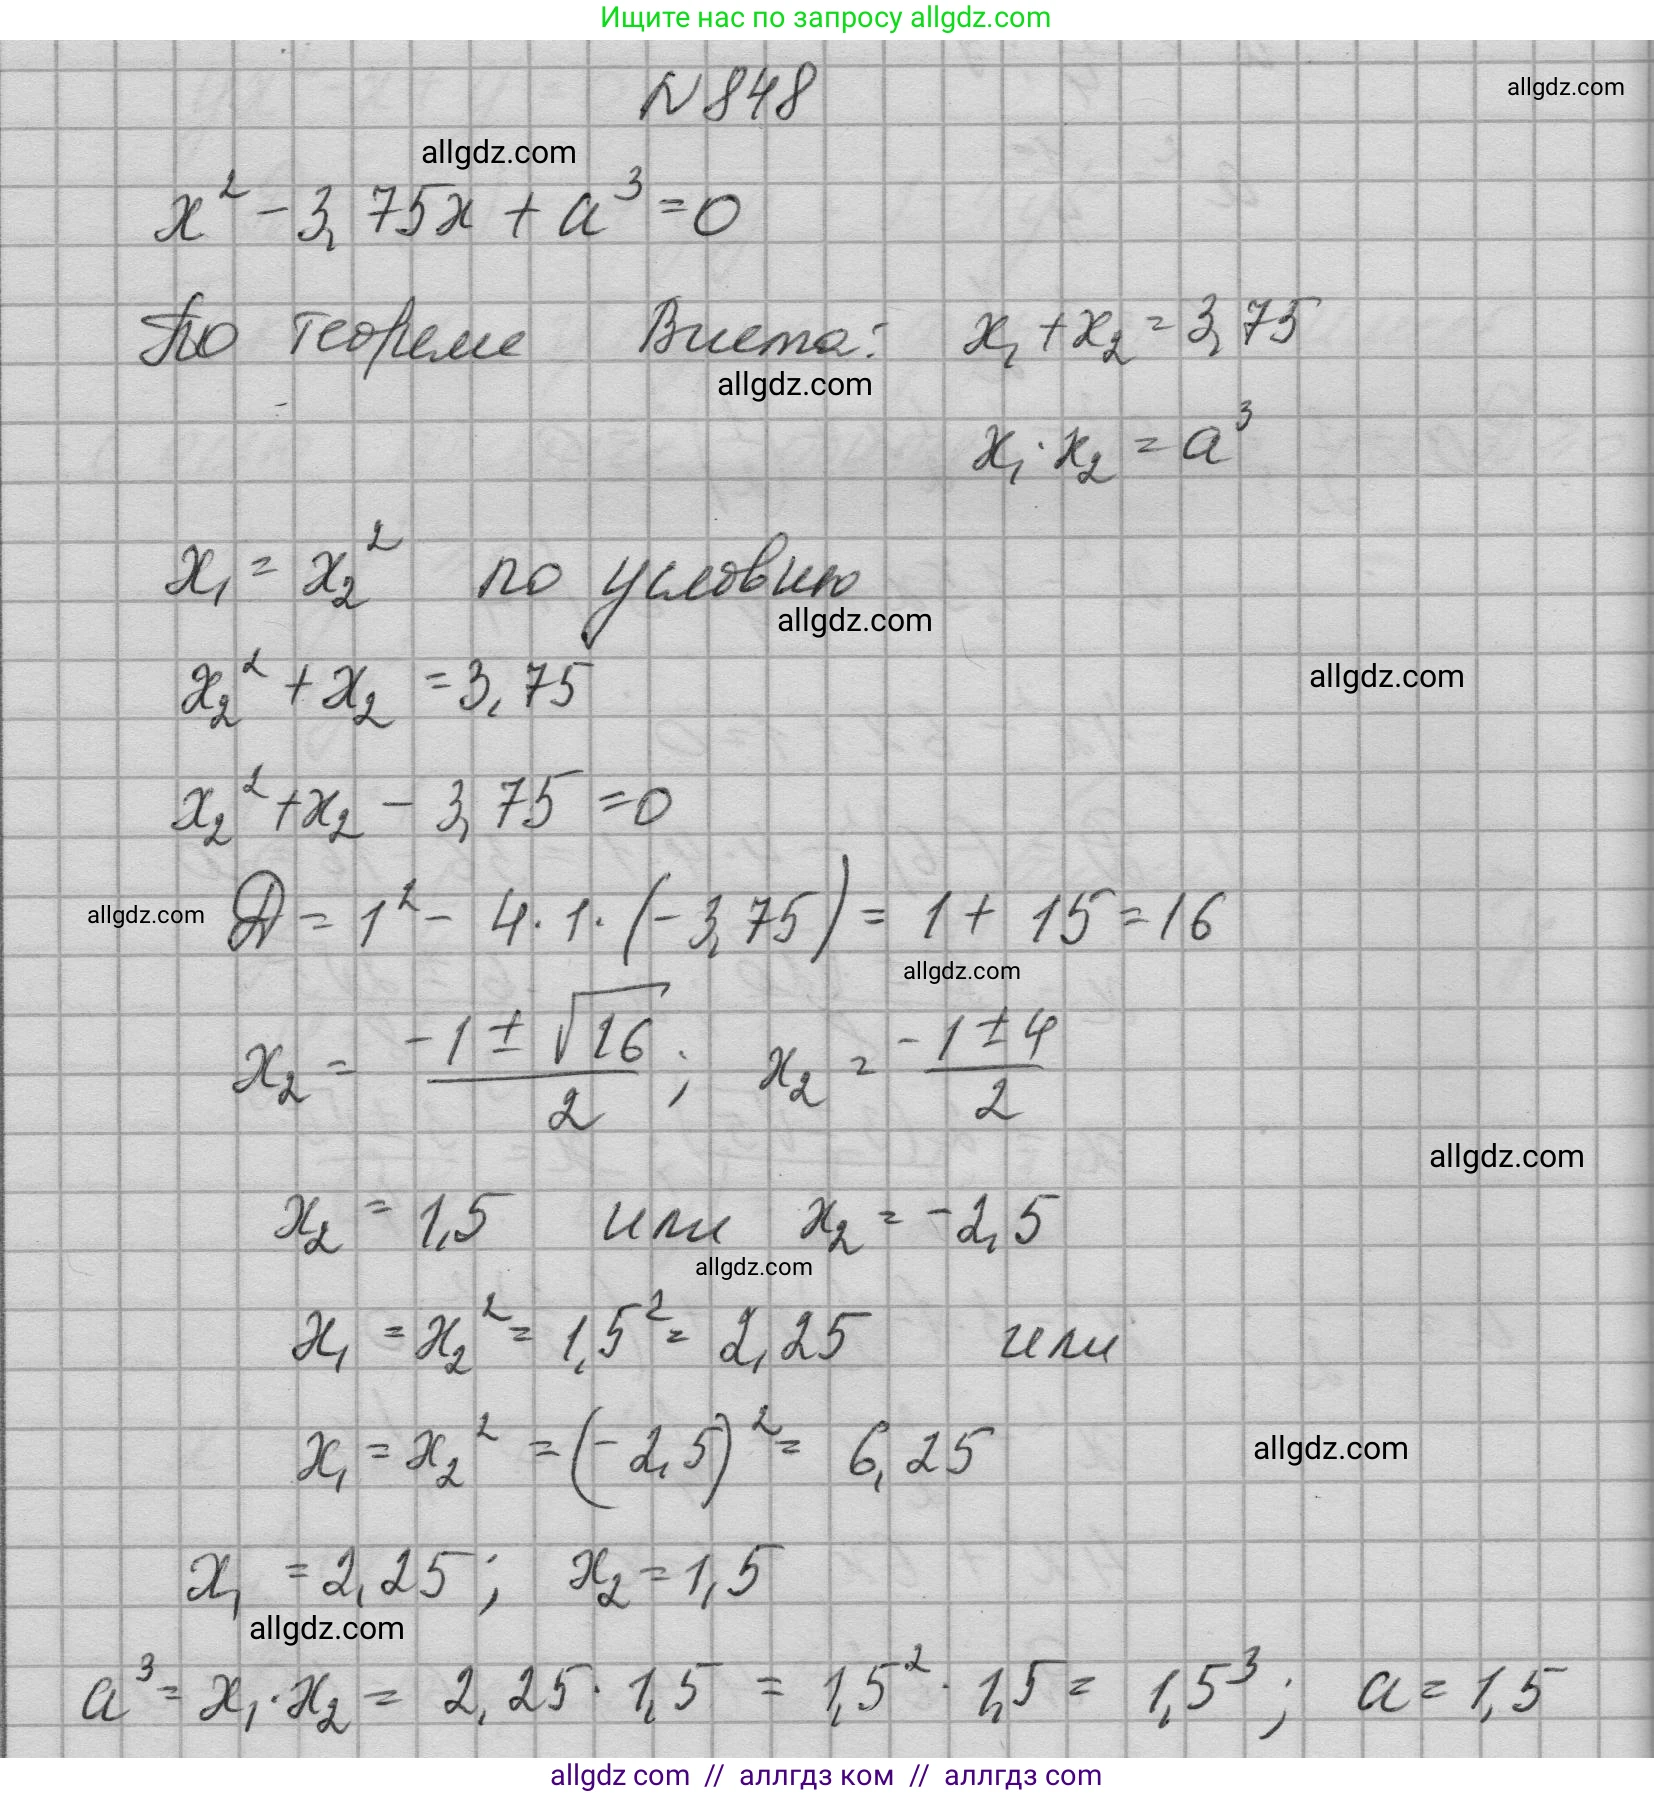 Ищите нас по запросу allgdz.com
№ 848
allgdz.com
allgdz.com
x² - 3,75x + a³ = 0
По теореме Виета: x₁ + x₂ = 3,75
allgdz.com
x₁ · x₂ = a³
x₁ = x₂² по условию
allgdz.com
x₂² + x₂ = 3,75
allgdz.com
x₂² + x₂ - 3,75 = 0
allgdz.com
D = 1² - 4 · 1 · (-3,75) = 1 + 15 = 16
allgdz.com
x₂ = (-1 ± √16)/2 ; x₂ = (-1 ± 4)/2
allgdz.com
x₂ = 1,5 или x₂ = -2,5
allgdz.com
x₁ = x₂² = 1,5² = 2,25 или
x₁ = x₂² = (-2,5)² = 6,25
allgdz.com
x₁ = 2,25 ; x₂ = 1,5
allgdz.com
a³ = x₁ · x₂ = 2,25 · 1,5 = 1,5² · 1,5 = 1,5³ ; a = 1,5
allgdz com // аллгдз ком // аллгдз com